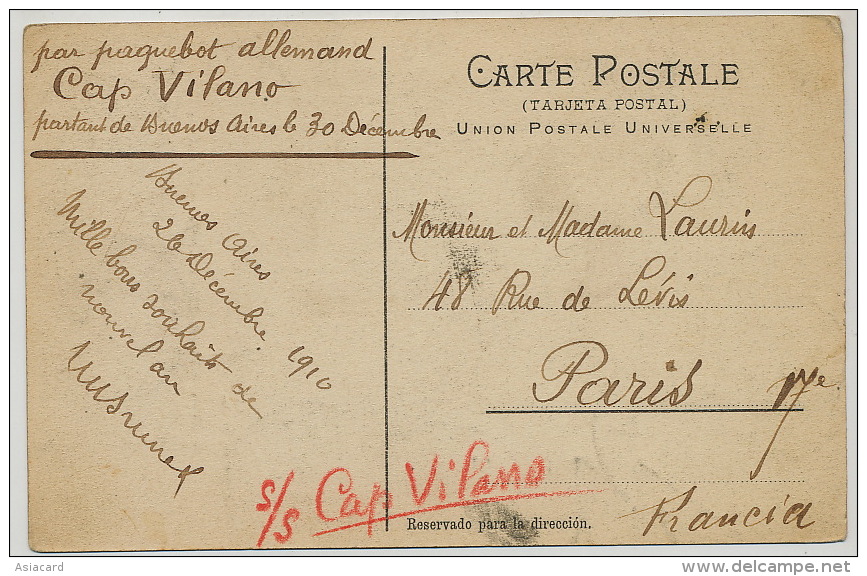 par paquebot allemand
Cap Vilano
partant de Buenos Aires le 30 Décembre
Buenos Aires
26 Décembre 1910
Mille bons souhaits de
nouvel an
CARTE POSTALE
(TARJETA POSTAL)
UNION POSTALE UNIVERSELLE
Monsieur et Madame Laurin
48 Rue de Lévis
Paris 17e
Francia
s/s Cap Vilano
Reservado para la dirección.
Asiacard
delcampe.net